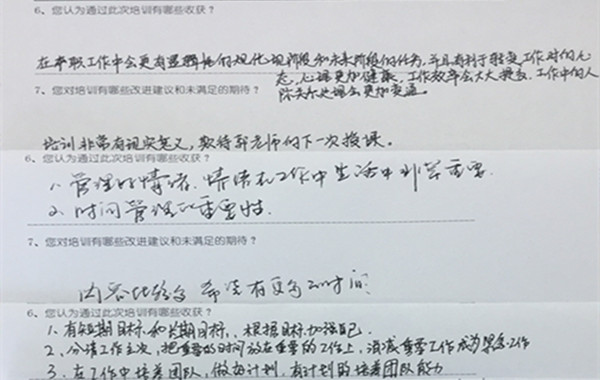 6、您认为通过此次培训有哪些收获？
在本职工作中会更有逻辑性的规化现阶段和未来阶段的任务，并且有利于转变工作时的心
态，心理更加健康，工作效率会大大提高，工作中的人
7、您对培训有哪些改进建议和未满足的期待？
际关系处理会更加变通。
培训非常有现实意义，期待郭老师的下一次授课。
6、您认为通过此次培训有哪些收获？
1、管理好情绪，情绪在工作中生活中非常重要。
2、时间管理的重要性。
7、您对培训有哪些改进建议和未满足的期待？
内容比较多 希望有更多的时间
6、您认为通过此次培训有哪些收获？
1、有短期目标和长期目标，根据目标加强自己
2、分清工作主次，把重要的时间放在重要的工作上，消减重要工作成为紧急工作
3、在工作中培养团队，做好计划，有计划的培养团队能力